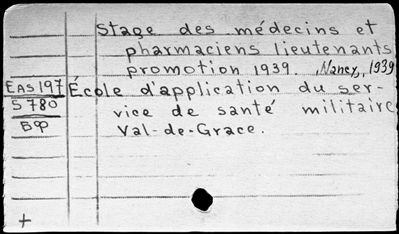 Stage des médecins et
pharmaciens lieutenants
promotion 1939. Nancy, 1939
EAS197 École d'application du ser-
5780 vice de santé militaire
Вф Val-de-Grace.